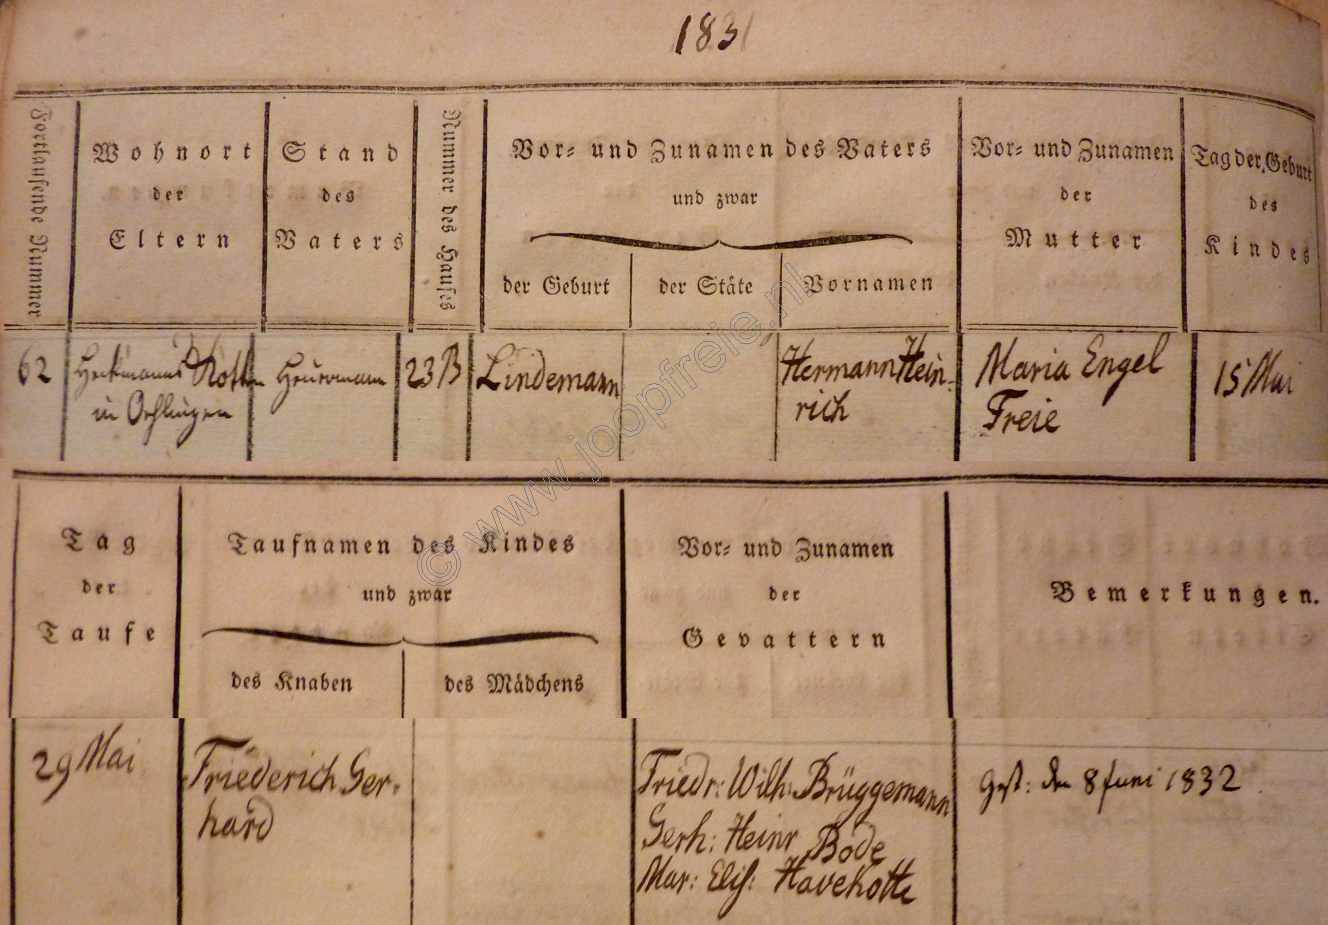 1831
Fortlaufende Nummer
Wohnort
der
Eltern
Stand
des
Vaters
Nummer des Hauses
Vor- und Zunamen des Vaters
und zwar
der Geburt
der Stäte
Vornamen
Vor- und Zunamen
der
Mutter
Tag der Geburt
des
Kindes
62
in Oehlingen
Heuermann
23 B
Lindemann
Hermann Hein-
rich
Maria Engel
Freie
15 Mai
Tag
der
Taufe
Taufnamen des Kindes
und zwar
des Knaben
des Mädchens
Vor- und Zunamen
der
Gevattern
Bemerkungen.
29 Mai
Friederich Ger-
hard
Friedr: Wilh: Brüggemann
Gerh: Heinr Bode
Mar: Elis: Havekotte
Gest: den 8 Juni 1832
© www.joopfreie.nl